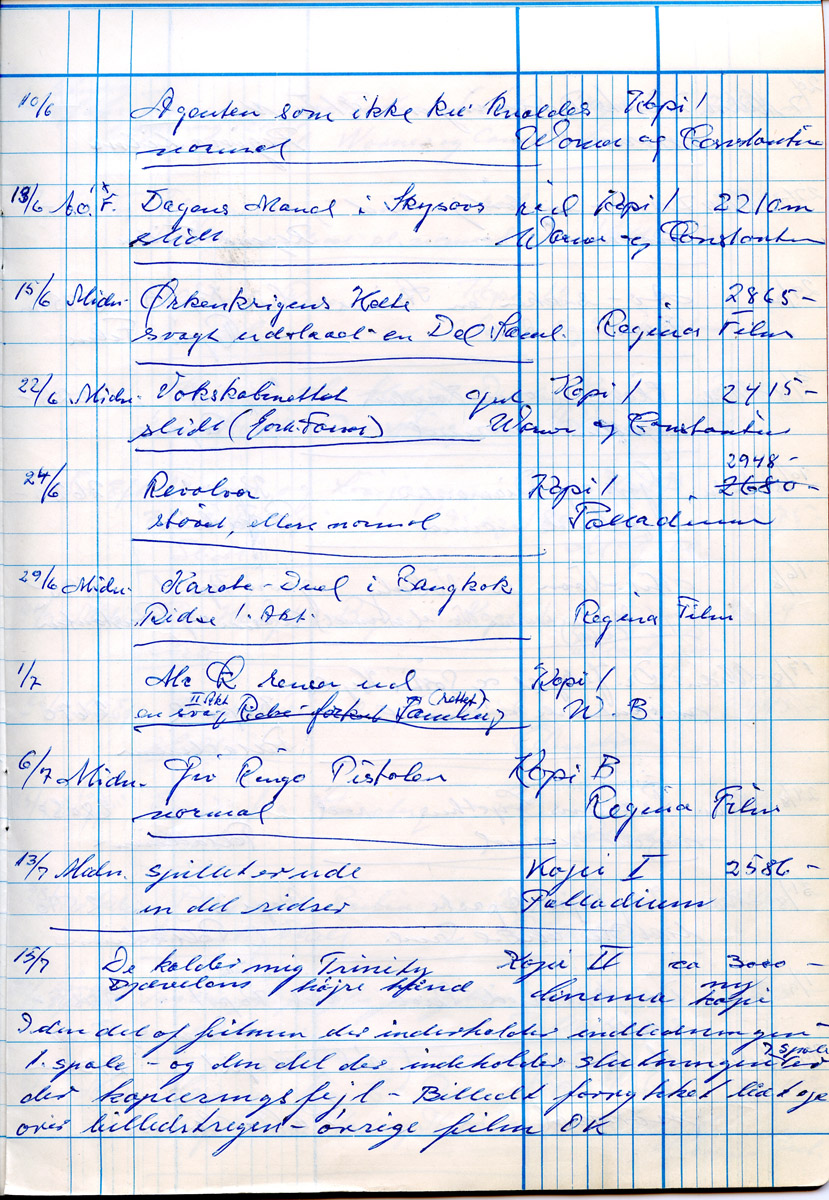 10/6 Agenten som ikke ku' knaldes Kopi 1
normal Warner og Constantin
13/6 F. Dagens Mand i Skysovs Kopi 1 2210 m
slidt Warner og Constantin
15/6 Midn. Ørkenkrigens Helte 2865 -
svagt udslaaet - en Del Saml. Regina Film
22/6 Midn. Vokskabinettet Kopi 1 2415 -
slidt ( ) Warner og Constantin
2948 -
24/6 Revolver Kopi 1 2680 -
støvet, ellers normal Palladium
29/6 Midn. Karate-Duel i Bangkok
Ridse 1. Akt. Regina Film
1/7 Mc Q renser ud Kopi 1
II Akt (rettet)
en svag forkert W. B
6/7 Midn. Giv Ringo Pistolen Kopi B
normal Regina Film
13/7 Midn. spillet er ude Kopi I 2586 -
en del ridser Palladium
15/7 De kalder mig Trinity Kopi II ca 3000 -
Djævelens højre hånd Cinema ny kopi
I den del af filmen der inderholder indledningen -
1. spole - og den del der indeholder slutningen 7 spole er
der kopieringsfejl - Billedet forrykket lidt op
over billedstregen - øvrige film OK